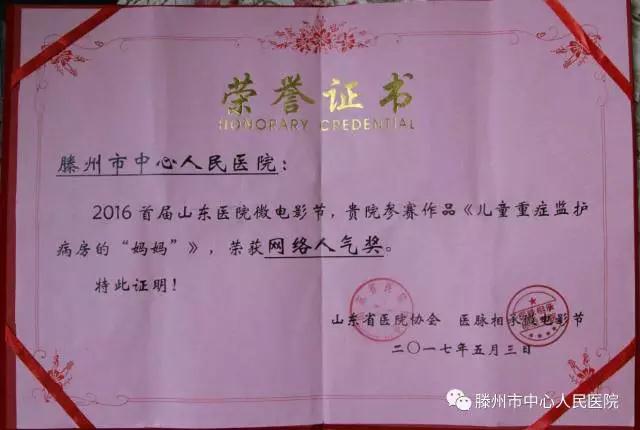 荣誉证书
HONORARY CREDENTIAL
滕州市中心人民医院：
2016首届山东医院微电影节，贵院参赛作品《儿童重症监护
病房的“妈妈”》，荣获网络人气奖。
特此证明！
山东省医院协会 医脉相承微电影节
二〇一七年五月三日
滕州市中心人民医院